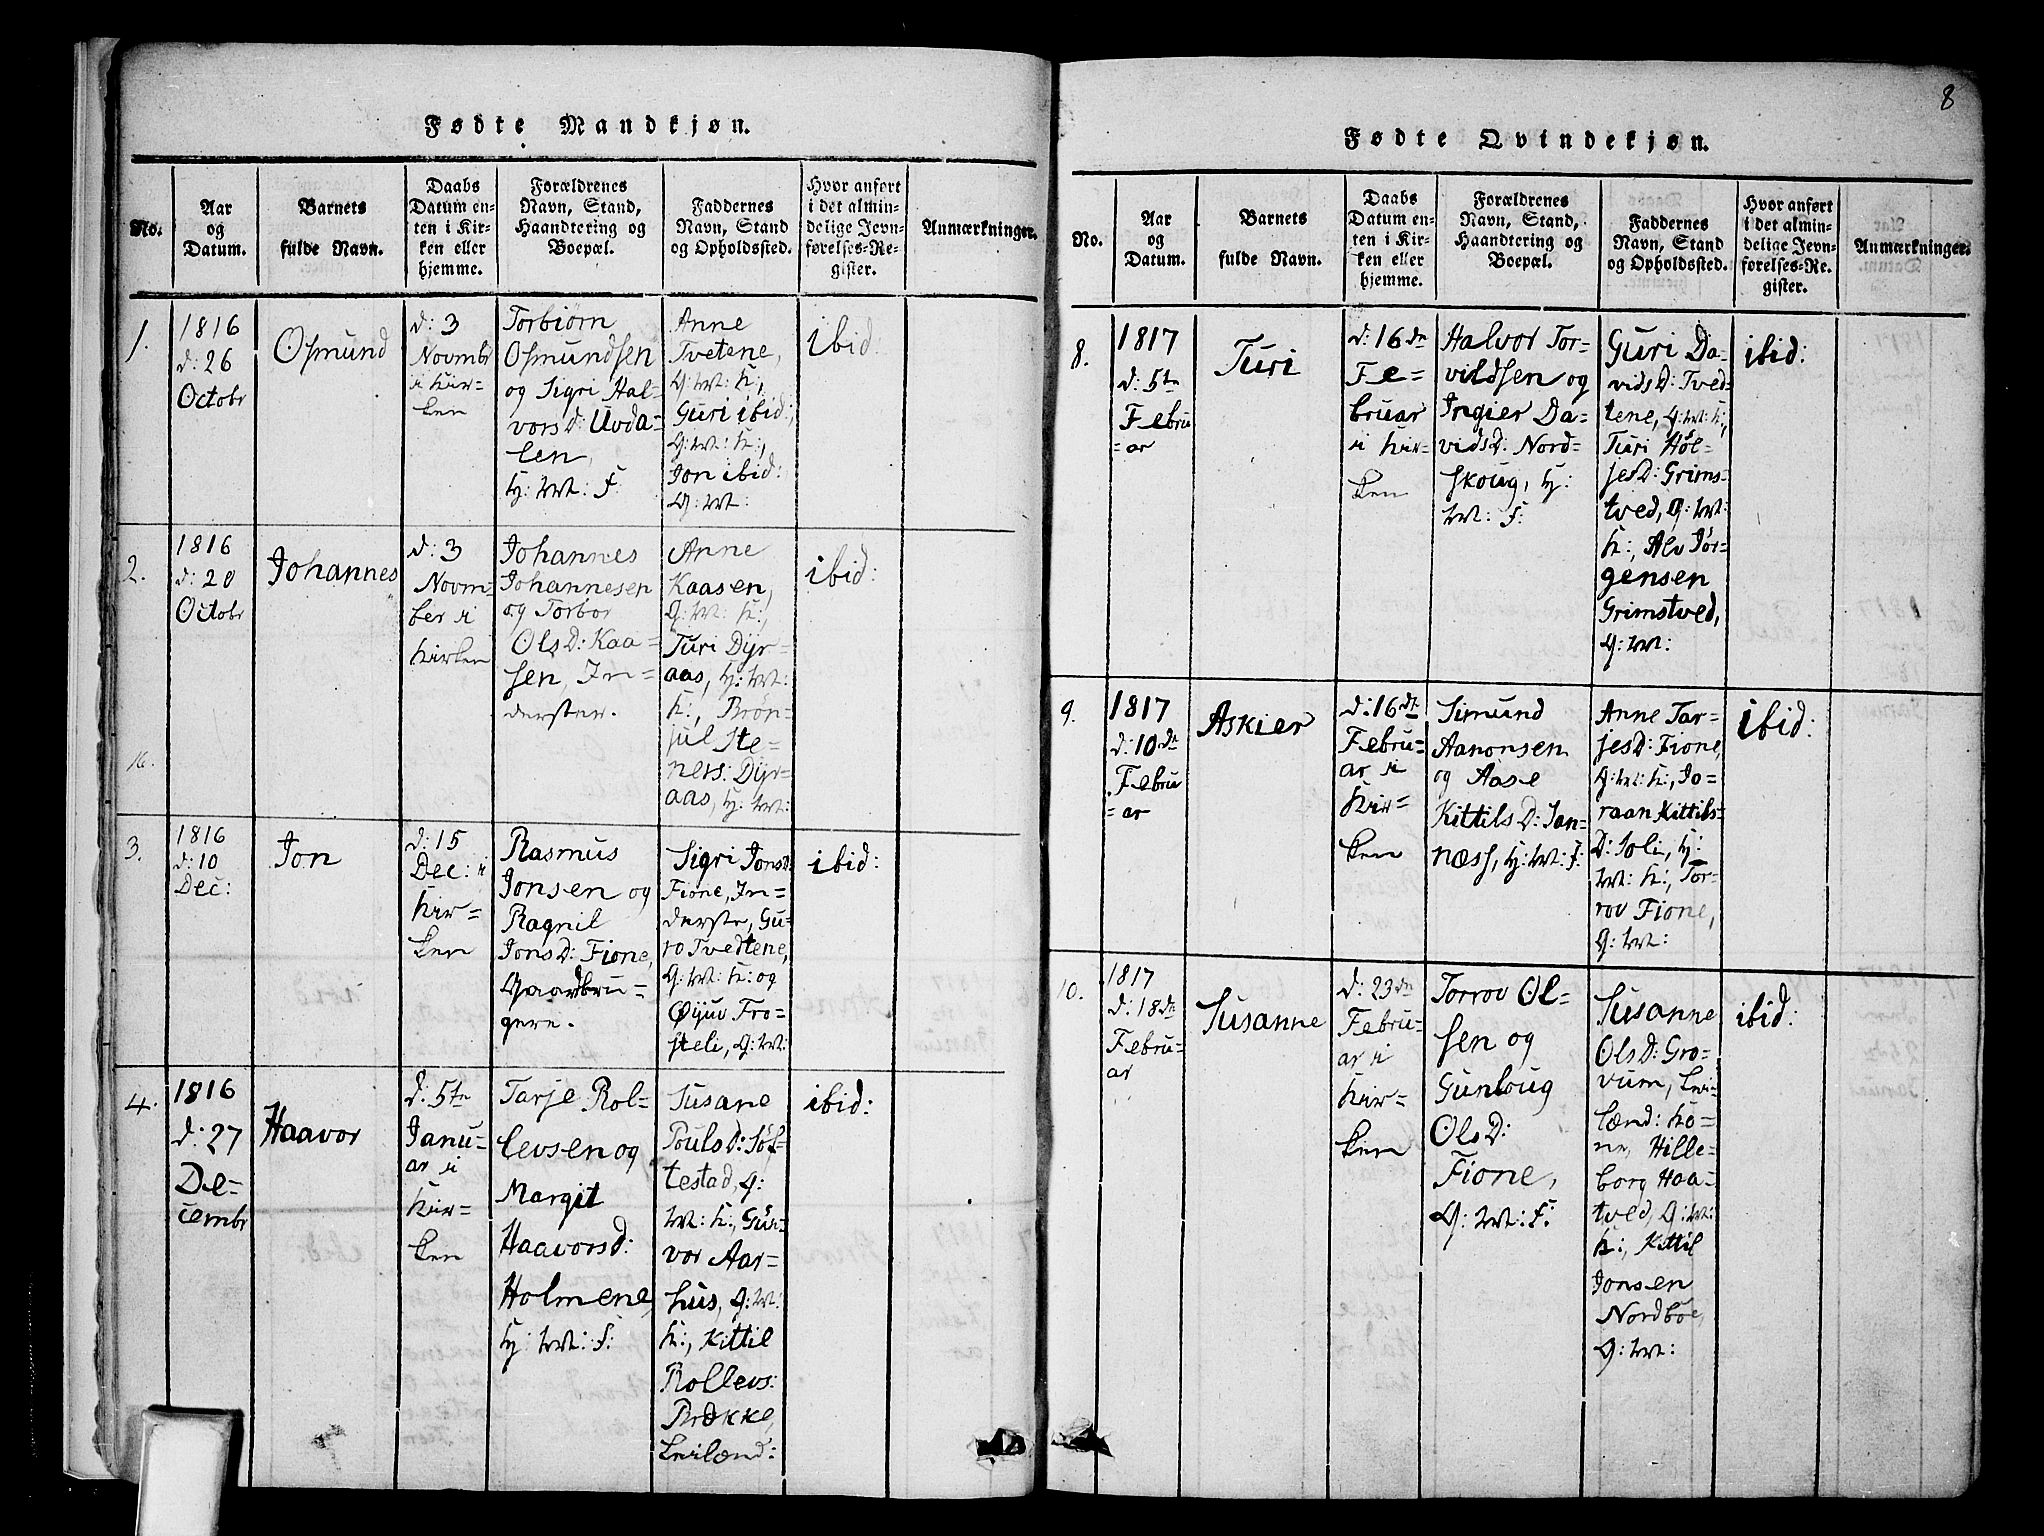 Fødte Mandkjøn.
No.
Aar
og
Datum.
Barnets
fulde Navn.
Daabs
Datum en-
ten i Kir-
ken eller
hjemme.
Forældrenes
Navn, Stand,
Haandtering og
Boepæl.
Faddernes
Navn, Stand
og Opholdssted.
Hvor anført
i det almin-
delige Jevn-
førelses-Re-
gister.
Anmærkninger.
1.
1816
d: 26
Octobr
Osmund
d: 3
Novmbr
i kir=
ken
Torbiørn
Osmundsen
og Sigri Hal=
vorsD: Uvda=
len,
H: M: F:
Anne
Tvetene,
G: M: K:,
Guri ibid:,
G: M: K:,
Jon ibid:
G: M:
ibid:
2.
1816
d: 20
Octobr
Johannes
d: 3
Novm=
ber i
kirken
Johannes
Johannesen
og Torbor
OlsD: Kaa=
sen, In=
derster.
Anne
Kaasen,
G: M: K:,
Turi Dyr=
aas, H: M:
K:, Brön=
jul Ste=
ners: Dyr=
aas, H: M:
ibid:
16.
3.
1816
d: 10
Dec:
Jon
d: 15
Dec: i
kir=
ken
Rasmus
Jonsen og
Ragnil
JonsD: Fione,
Gaardbru=
gere.
Sigri JonsD:
Fione, In=
derste, Gu=
ro Tvedtene,
G: M: K: og
Øijuv Fro=
steli, G: M:
ibid:
4.
1816
d: 27
De=
cembr
Haavor
d: 5te
Janu=
ar i
kir=
ken
Tarje Rol=
levsen og
Margit
Haavorsd:
Holmene,
H: M: F:
Susane
Poulsd: Söf=
testad, G:
M: K:, Gun=
vor Aar=
hus, G: M:
K:, Kittil
Rollevs:
Brække,
Leilænd:
ibid:
8
Fødte Qvindekjøn.
No.
Aar
og
Datum.
Barnets
fulde Navn.
Daabs
Datum en-
ten i Kir-
ken eller
hjemme.
Forældrenes
Navn, Stand,
Haandtering og
Boepæl.
Faddernes
Navn, Stand
og Opholdssted.
Hvor anført
i det almin-
delige Jevn-
førelses-Re-
gister.
Anmærkninger.
8.
1817
d: 5te
Febru
=ar
Turi
d: 16de
Fe=
bruar
i kir=
ken
Halvor Tor=
vildsen og
Ingier Da=
vidsD: Nord=
skoug, H:
M: F:
Guri Da=
vidsD: Tved=
tene, G: M: K:,
Turi Höl=
jesD: Grims=
tved, G: M:
K:, Alv Jör=
gensen
Grimstved,
G: M:
ibid:
9.
1817
d: 10de
Febru
=ar
Askier
d: 16de
Febru=
ar i
kir=
ken
Simund
Aanonsen
og Aase
KittilsD: San=
næss, H: M: F:
Anne Tar=
jesD: Fione,
G: M: K:, Jo=
raan Kittils=
D: Soli, H:
M: K:, Tor=
rov Fione,
G: M:
ibid:
10.
1817
d: 18de
Febru=
ar
Susanne
d: 23de
Febru=
ar i
kir=
ken
Torrov Ol=
sen og
Gunloug
OlsD:
Fione,
G: M: F:
Susanne
OlsD: Gro=
vum, Lei=
lænd: Ko=
ne, Hille=
borg Haa=
tved, G: M:
K:, Kittil
Jonsen
Nordböe,
G: M:
ibid: